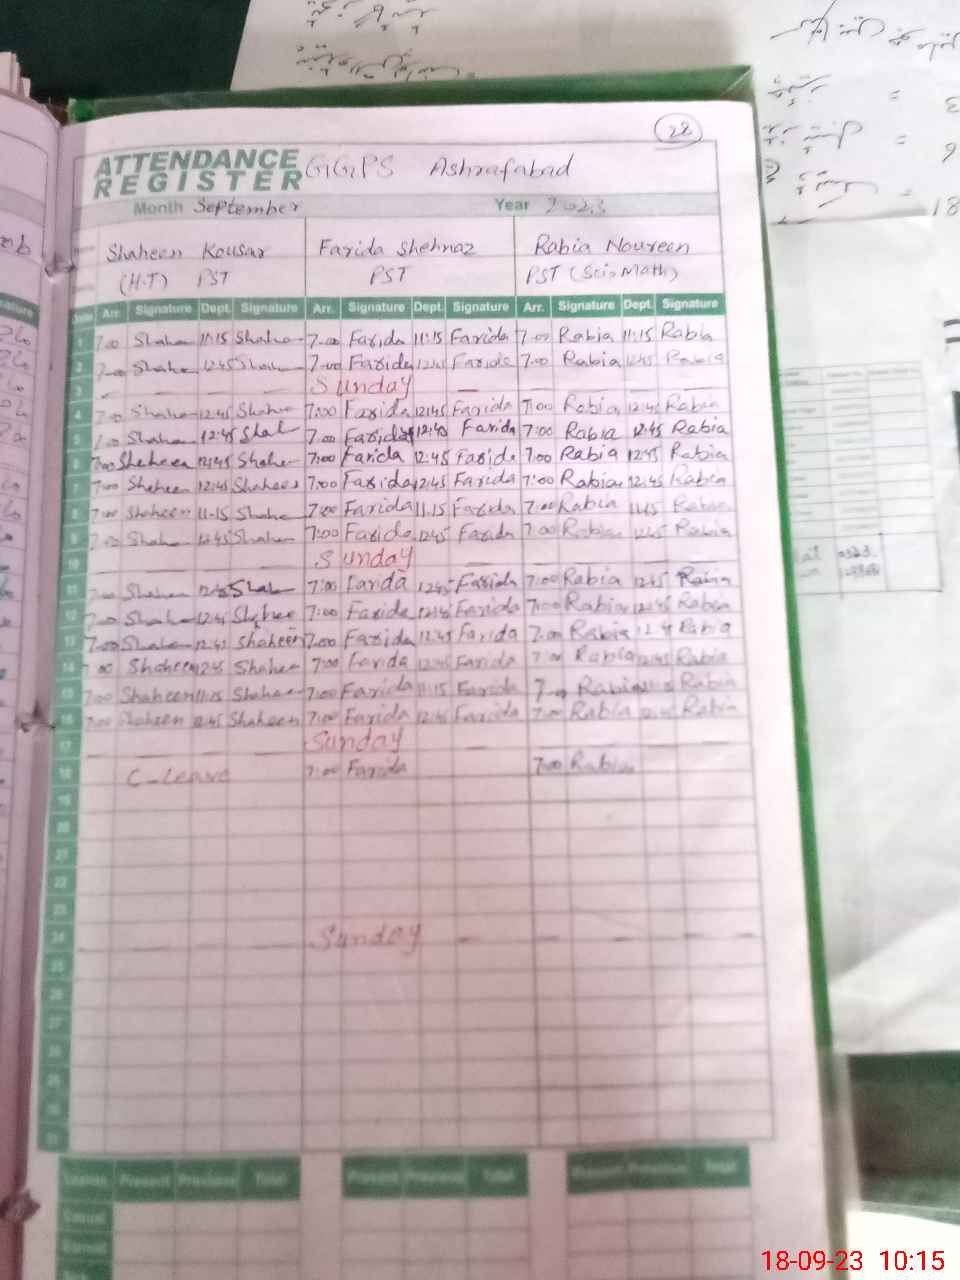 28
ATTENDANCE REGISTER GGPS Ashrafabad
Month September Year 2023
Shaheen Kousar Farida Shehnaz Rabia Noureen
(H.T) PST PST PST (Sci-Math)
Date Arr. Signature Dept. Signature Arr. Signature Dept. Signature Arr. Signature Dept. Signature
1 7:00 Shahe 11:15 Shahe 7:00 Farida 11:15 Farida 7:00 Rabia 11:15 Rabia
2 7:00 Shahe 12:45 Shahe 7:00 Farida 12:45 Farida 7:00 Rabia 12:45 Rabia
3 Sunday
4 7:00 Shahe 12:45 Shahe 7:00 Farida 12:45 Farida 7:00 Rabia 12:45 Rabia
5 7:00 Shahe 12:45 Shah 7:00 Farida 12:45 Farida 7:00 Rabia 12:45 Rabia
6 7:00 Shaheen 12:45 Shahe 7:00 Farida 12:45 Farida 7:00 Rabia 12:45 Rabia
7 7:00 Shaheen 12:45 Shaheen 7:00 Farida 12:45 Farida 7:00 Rabia 12:45 Rabia
8 7:00 Shaheen 11:15 Shahe 7:00 Farida 11:15 Farida 7:00 Rabia 11:15 Rabia
9 7:00 Shahe 12:45 Shahe 7:00 Farida 12:45 Farida 7:00 Rabia 12:45 Rabia
10 Sunday
11 7:00 Shahe 12:45 Shah 7:00 Farida 12:45 Farida 7:00 Rabia 12:45 Rabia
12 7:00 Shahe 12:45 Shahee 7:00 Farida 12:45 Farida 7:00 Rabia 12:45 Rabia
13 7:00 Shahe 12:45 Shaheen 7:00 Farida 12:45 Farida 7:00 Rabia 12:45 Rabia
14 7:00 Shaheen 12:45 Shahee 7:00 Farida 12:45 Farida 7:00 Rabia 12:45 Rabia
15 7:00 Shaheen 11:15 Shahee 7:00 Farida 11:15 Farida 7:00 Rabia 11:15 Rabia
16 7:00 Shaheen 12:45 Shaheen 7:00 Farida 12:45 Farida 7:00 Rabia 12:45 Rabia
17 Sunday
18 C-Leave 7:00 Farida 7:00 Rabia
19
20
21
22
23
24 Sunday
25
26
27
28
29
30
31
Leaves Present Previous Total Present Previous Total Present Previous Total
Casual
Earned
18-09-23 10:15